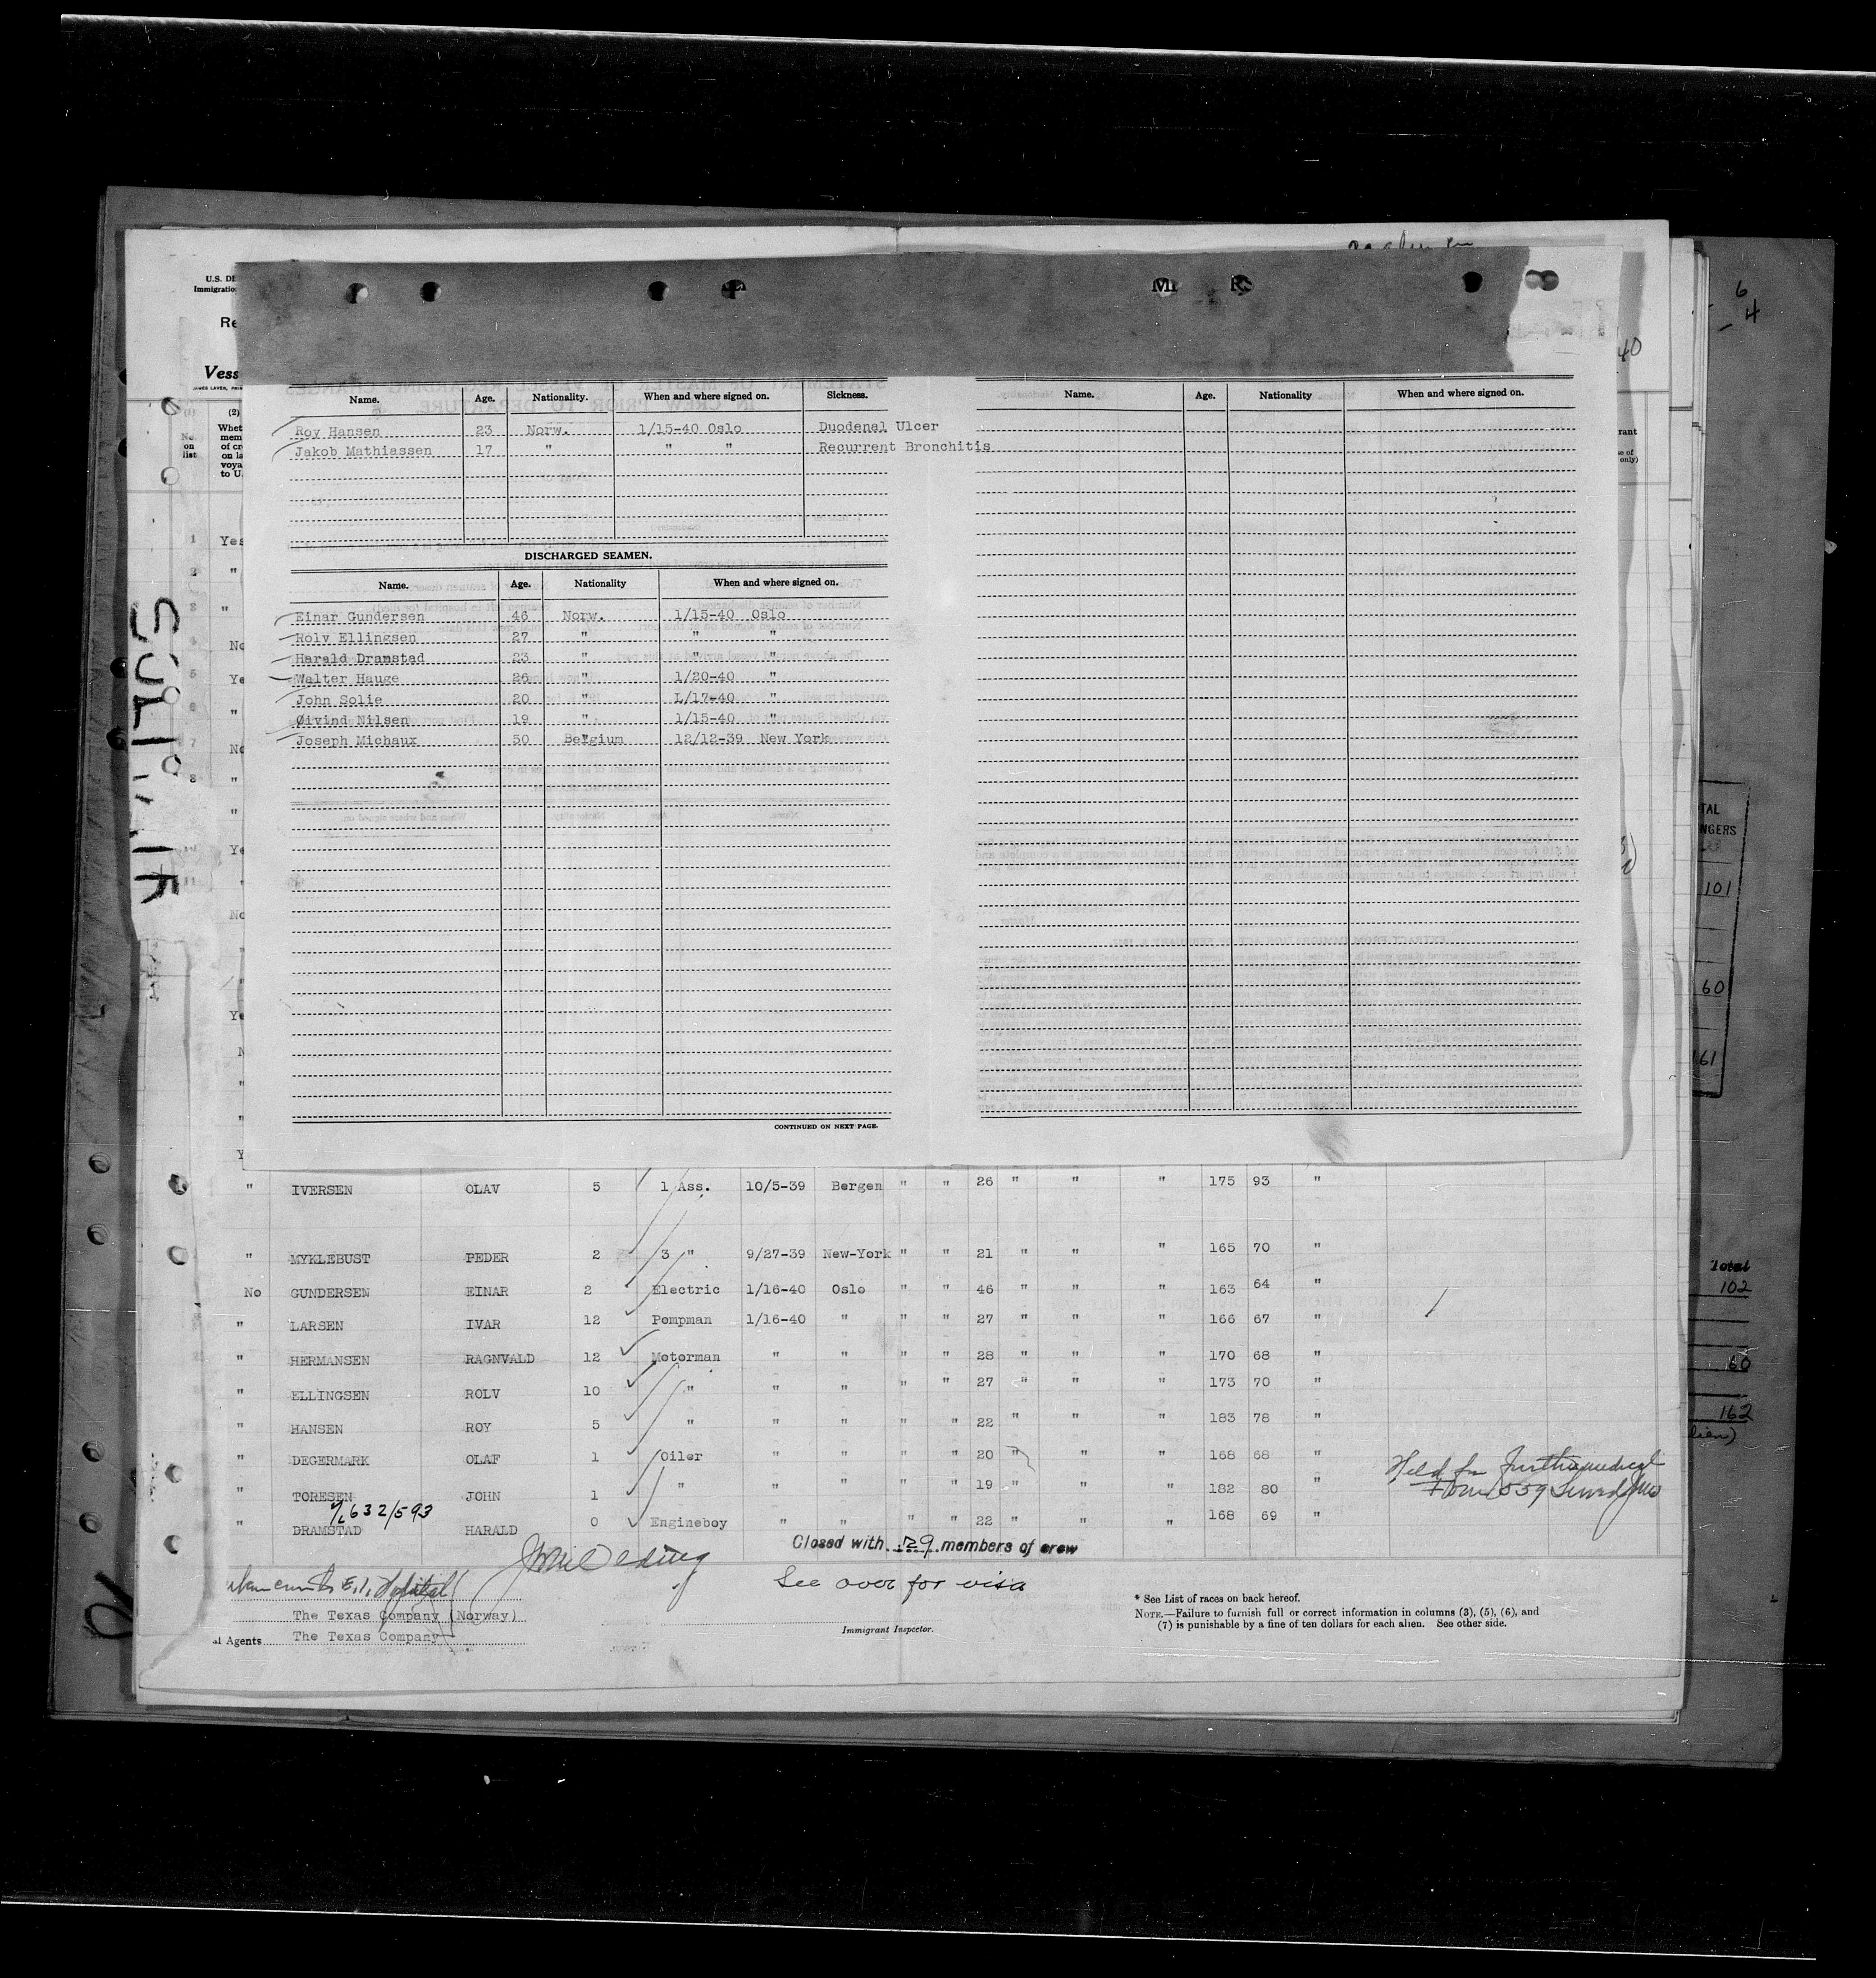 U.S. DE
Immigratio
Re
Vess
Name. Age. Nationality. When and where signed on. Sickness.
Roy Hansen 23 Norw. 1/15-40 Oslo Duodenal Ulcer
Jakob Mathiassen 17 " " " Recurrent Bronchitis
DISCHARGED SEAMEN.
Name. Age. Nationality When and where signed on.
Einar Gundersen 46 Norw. 1/15-40 Oslo
Rolv Ellingsen 27 " " "
Harald Dramstad 23 " " "
Walter Hauge 26 " 1/20-40 "
John Solie 20 " L/17-40 "
Øivind Nilsen 19 " 1/15-40 "
Joseph Michaux 50 Belgium 12/12-39 New York
CONTINUED ON NEXT PAGE.
Name. Age. Nationality When and where signed on.
(1) (2)
No. on list
Whet
mem
of cr
on la
voya
to U.
1 Yes
2 "
3 "
4 No
5 Ye
6 "
7 No
8 "
"
10 Ye
11 "
No
" IVERSEN OLAV 5 1 Ass. 10/5-39 Bergen " " 26 " " " 175 93 "
" MYKLEBUST PEDER 2 3 " 9/27-39 New-York " " 21 " " " 165 70 "
No GUNDERSEN EINAR 2 Electric 1/16-40 Oslo " " 46 " " " 163 64 "
" LARSEN IVAR 12 Pompman 1/16-40 " " " 27 " " " 166 67 "
" HERMANSEN RAGNVALD 12 Motorman " " " " 28 " " " 170 68 "
" ELLINGSEN ROLV 10 " " " " " 27 " " " 173 70 "
" HANSEN ROY 5 " " " " " 22 " " " 183 78 "
" DEGERMARK OLAF 1 Oiler " " " " 20 " " " 168 68 "
" TORESEN JOHN 1 " " " " " 19 " " " 182 80 "
Held for
632/593
" DRAMSTAD HARALD 0 Engineboy " " " " 22 " " " 168 69 "
Closed with 29 members of crew
See over for visa
The Texas Company (Norway)
al Agents The Texas Company
Immigrant Inspector.
* See List of races on back hereof.
NOTE.—Failure to furnish full or correct information in columns (3), (5), (6), and
(7) is punishable by a fine of ten dollars for each alien. See other side.
6
4
40
TAL
NGERS
101
60
161
Total
102
60
162